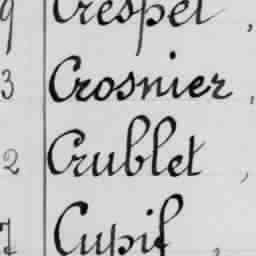 9 Crespel,
3 Crosnier,
2 Crublet,
7 Cupif,